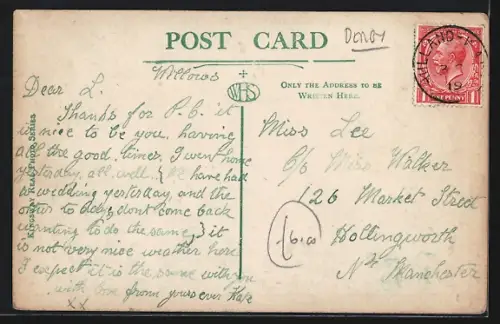 POST CARD
Willows
WHS
ONLY THE ADDRESS TO BE
WRITTEN HERE.
KINGSWAY REAL PHOTO SERIES
Dear L.
Thanks for P.C. it
is nice to be you, having
all the good times. I went home
yesterday, all well. We have had
a wedding yesterday, and the
other to day, dont come back
wanting to do the same, it
is not very nice weather here
I expect it is the same with you
with love from yours ever
xx
Miss Lee
c/o Miss Walker
126 Market Street
Hollingworth
Nr Manchester
ONE PENNY
19